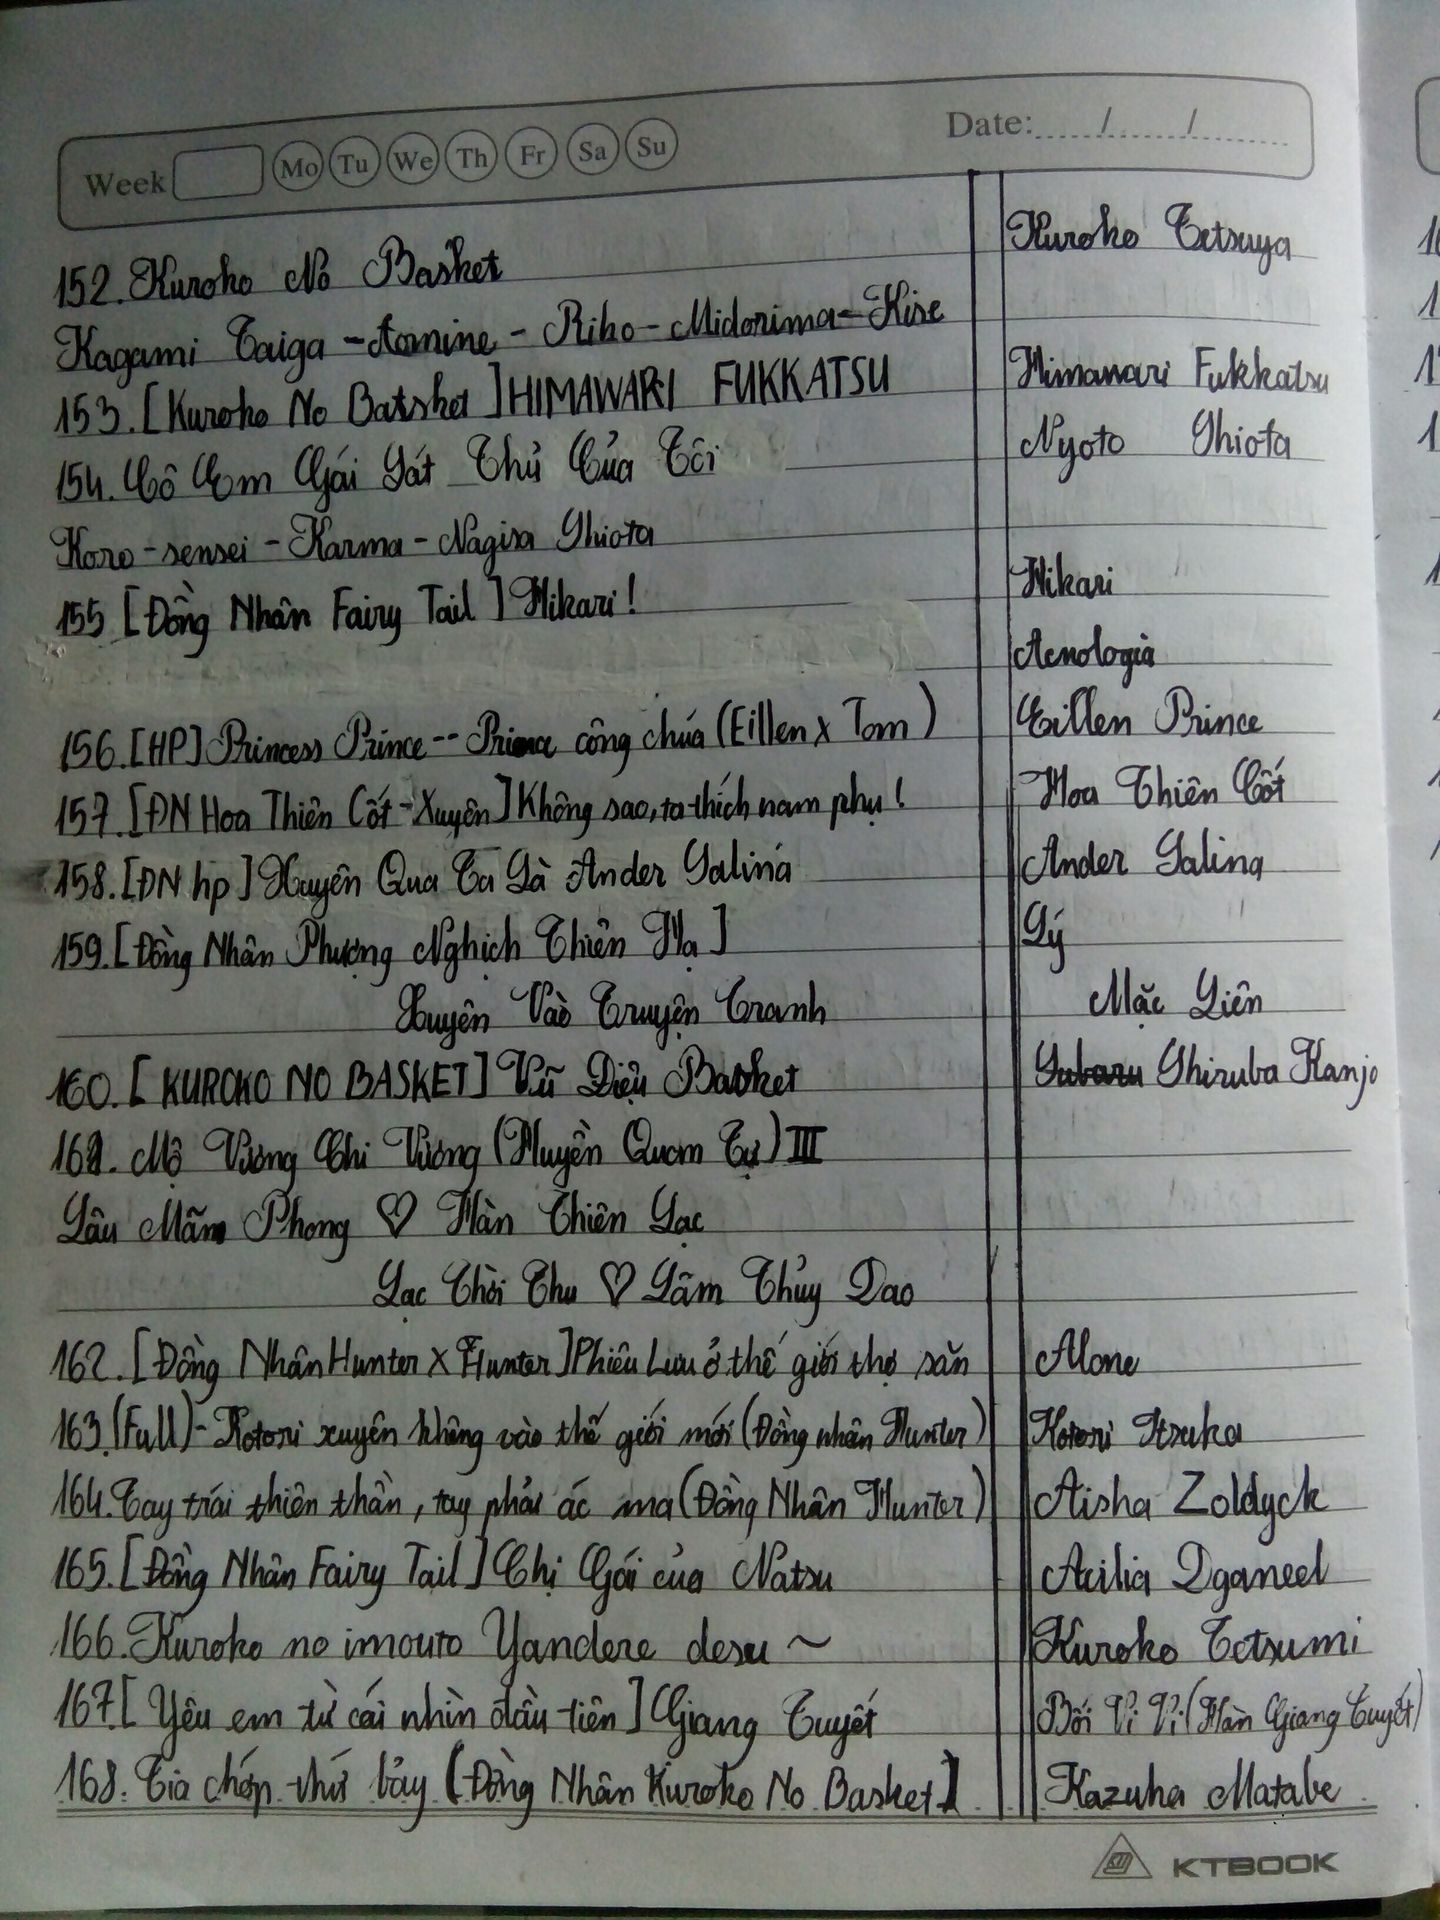 Week Mo Tu We Th Fr Sa Su Date:
152. Kuroko No Basket Kuroko Tetsuya
Kagami Taiga - Aomine - Riko - Midorima - Kise
153. [Kuroko No Batsket] HIMAWARI FUKKATSU Himawari Fukkatsu
154. Cô Em Gái Sát Thủ Của Tôi Nyoto Shiota
Koro-sensei - Karma - Nagisa Shiota
155 [Đồng Nhân Fairy Tail] Hikari! Hikari
Acnologia
156. [HP] Princess Prince -- Prince công chúa (Eillen x Tom) Eillen Prince
157. [ĐN Hoa Thiên Cốt - Xuyên] Không sao, ta thích nam phụ! Hoa Thiên Cốt
158. [ĐN hp] Xuyên Qua Ta Là Ander Salina Ander Salina
159. [Đồng Nhân Phượng Nghịch Thiên Hạ] Lý
Xuyên Vào Truyện Tranh Mặc Liên
160. [KUROKO NO BASKET] Vũ Điệu Basket Shiruba Kanjo
161. Mộ Vương Chi Vương (Huyền Quan Tự) III
Lâu Mãn Phong ♡ Hàn Thiên Lạc
Lạc Thời Thu ♡ Lâm Thủy Dao
162. [Đồng Nhân Hunter x Hunter] Phiêu Lưu ở thế giới thợ săn Alone
163. (Full) - Kotori xuyên không vào thế giới mới (Đồng nhân Hunter) Kotori Itsuka
164. Tay trái thiên thần, tay phải ác ma (Đồng Nhân Hunter) Aisha Zoldyck
165. [Đồng Nhân Fairy Tail] Chị Gái của Natsu Acilia Dganeel
166. Kuroko no imouto Yandere desu ~ Kuroko Tetsumi
167. [Yêu em từ cái nhìn đầu tiên] Giang Tuyết Bối Vi Vi (Hàn Giang Tuyết)
168. Tia chớp thứ bảy [Đồng Nhân Kuroko No Basket] Kazuha Matabe
KTBOOK